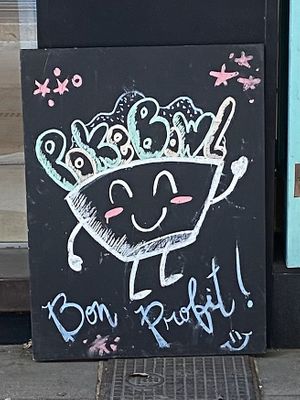 Poke Bowl
Bon Profit!